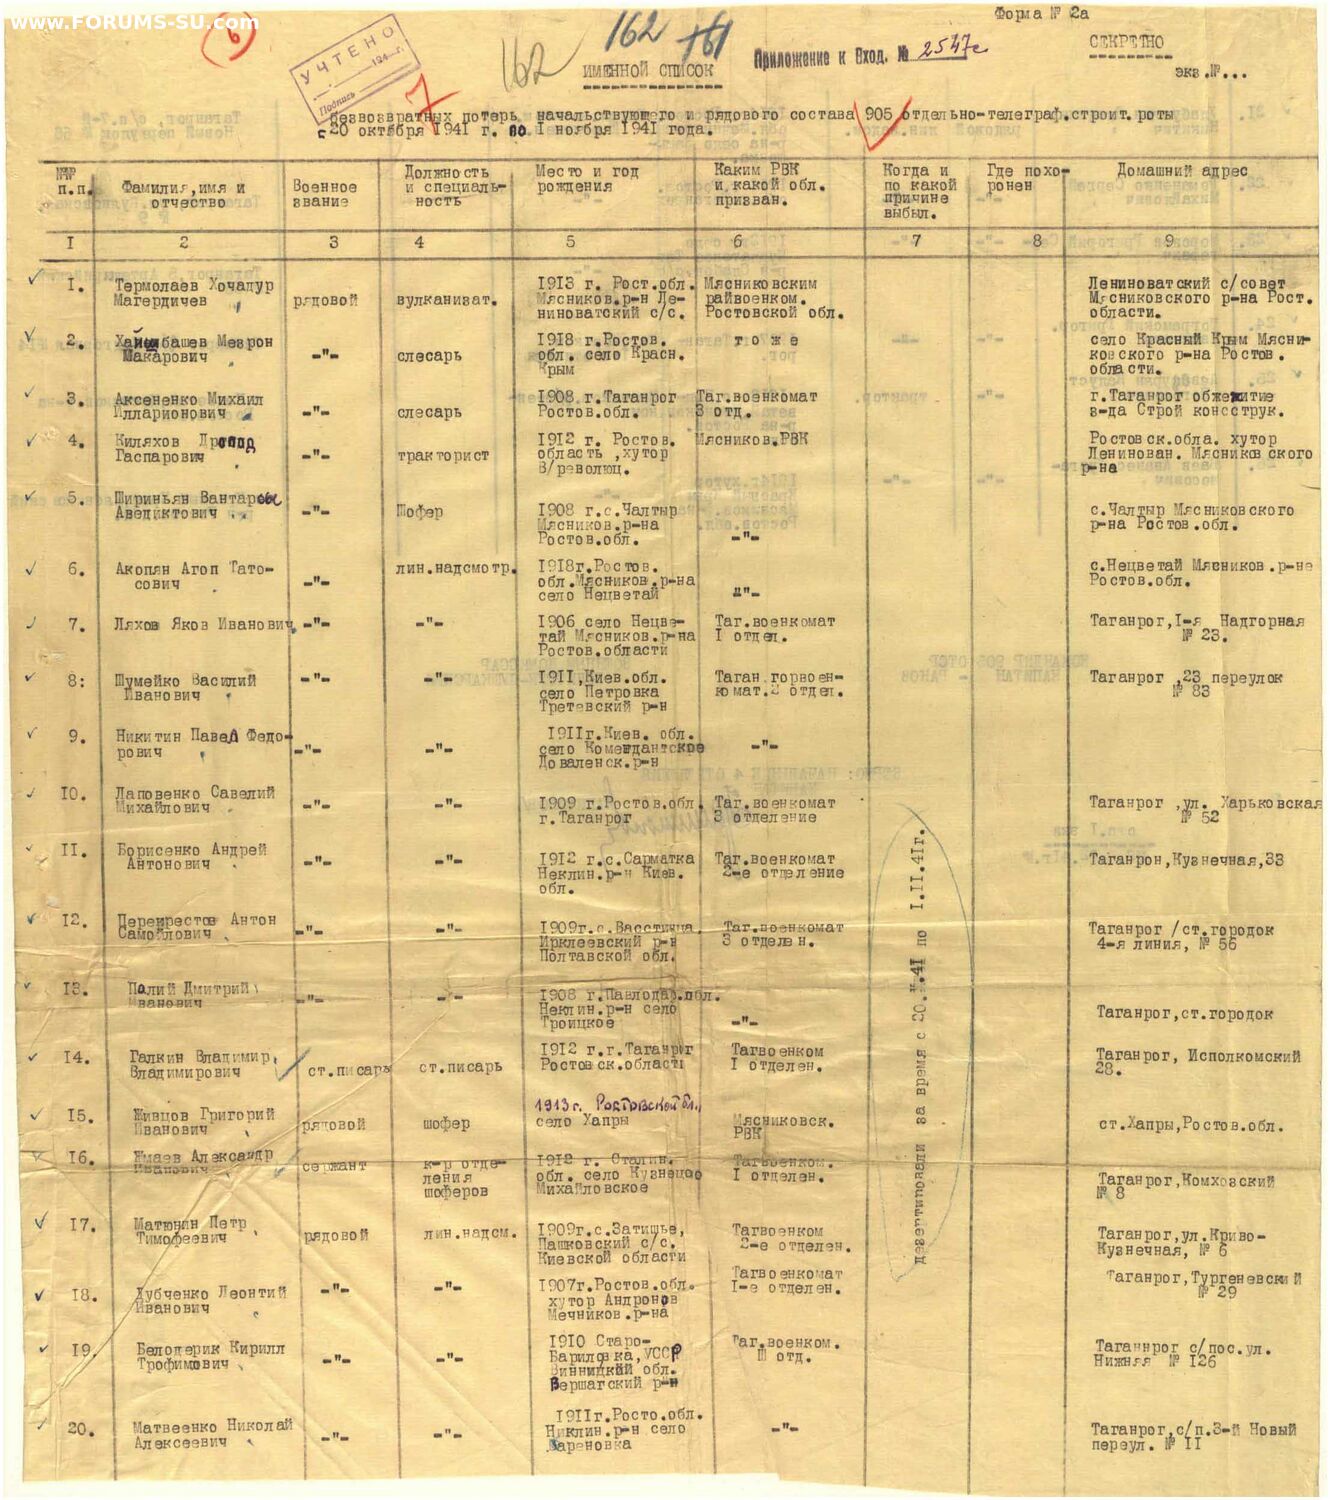 www.FORUMS-SU.com
6
УЧТЕНО
194 г.
Подпись
162
162 161
Приложение к Вход. № 2547с
Форма № 2а
СЕКРЕТНО
экз.№...
ИМЕННОЙ СПИСОК
безвозвратных потерь начальствующего и рядового состава 905 отдельно-телеграф.строит.роты
с 20 октября 1941 г. по 1 ноября 1941 года.
№№ п.п. Фамилия,имя и отчество Военное звание Должность и специальность Место и год рождения Каким РВК и какой обл. призван. Когда и по какой причине выбыл. Где похоронен Домашний адрес
I 2 3 4 5 6 7 8 9
I. Термолаев Хочадур Магердичев рядовой вулканизат. 1913 г. Рост.обл. Мясников.р-н Лениноватский с/с. Мясниковским райвоенком. Ростовской обл. Лениноватский с/совет Мясниковского р-на Рост. области.
2. башев Мезрон Макарович -"- слесарь 1918 г.Ростов. обл. село Красн. Крым т о ж е село Красный Крым Мясниковского р-на Ростов. области.
3. Аксененко Михаил Илларионович -"- слесарь 1908 г.Таганрог Ростов.обл. Таг.военкомат 3 отд. г.Таганрог общежитие з-да Строй консструк.
4. Киляхов Гаспарович -"- тракторист 1912 г. Ростов. область ,хутор В/революц. Мясников.РВК Ростовск.обла. хутор Ленинован. Мясниковского р-на
5. Шириньян Аведиктович -"- Шофер 1908 г.с.Чалтыр Мясников.р-на Ростов.обл. -"- с.Чалтыр Мясниковского р-на Ростов.обл.
6. Акопян Агоп Татосович -"- лин.надсмотр. 1918г.Ростов. обл.Мясников.р-на село Нецветай -"- с.Нецветай Мясников.р-на Ростов.обл.
7. Ляхов Яков Иванович -"- -"- 1906 село Нецветай Мясников.р-на Ростов.области Таг.военкомат I отдел. Таганрог,I-я Надгорная № 23.
8: Шумейко Василий Иванович -"- -"- 1911,Киев.обл. село Петровка Третевский р-н Таган.горвоенкомат.2 отдел. Таганрог ,23 переулок № 83
9. Никитин Павел Федорович -"- -"- 1911г.Киев. обл. село Комендантское Доваленск.р-н -"-
10. Лаповенко Савелий Михайлович -"- -"- 1909 г.Ростов.обл. г.Таганрог Таг.военкомат 3 отделение Таганрог ,ул. Харьковская № 52
11. Борисенко Андрей Антонович -"- -"- 1912 г.с.Сарматка Неклин.р-н Киев. обл. Таг.военкомат 2-е отделение Таганрон,Кузнечная,33
12. Перекрестов Антон Самойлович -"- -"- 1909г.с. Ирклеевский р-н Полтавской обл. Таг.военкомат 3 отделен. Таганрог /ст.городок 4-я линия, № 56
13. Палий Дмитрий Иванович -"- - - 1908 г.Павлодар.обл. Неклин.р-н село Троицкое -"- Таганрог,ст.городок
14. Галкин Владимир Владимирович ст.писарь ст.писарь 1912 г.г.Таганрог Ростовск.области Тагвоенком I отделен. Таганрог, Исполкомский 28.
15. Живцов Григорий Иванович рядовой шофер 1913г. Ростовской обл., село Хапры Мясниковск. РВК ст.Хапры,Ростов.обл.
16. Жмаев Александр Иванович сержант к-р отделения шоферов 1912 г. Сталин. обл. село Кузнецоо Михайловское Тагвоенком. I отделен. Таганрог,Комхозский № 8
17. Матюнин Петр Тимофеевич рядовой лин.надсм. 1909г.с.Затишье, Пашковский с/с. Киевской области Тагвоенком 2-е отделен. Таганрог,ул.Криво-Кузнечная, № 6
18. Дубченко Леонтий Иванович -"- -"- 1907г.Ростов.обл. хутор Андронов Мечников.р-на Тагвоенкомат I-е отделен. Таганрог,Тургеневский № 29
19. Белодерик Кирилл Трофимович -"- -"- 1910 Старо-Бариловка,УССР Винницкий обл. Вершагский р-н Таг.военком. III отд. Таганнрог с/пос.ул. Нижняя № 126
20. Матвеенко Николай Алексеевич -"- -"- 1911г.Росто.обл. Никлин.р-н село -"- Таганрог,с/п.3-й Новый переул. № II
дезертировали за время с 20.X.41 по I.II.41г.